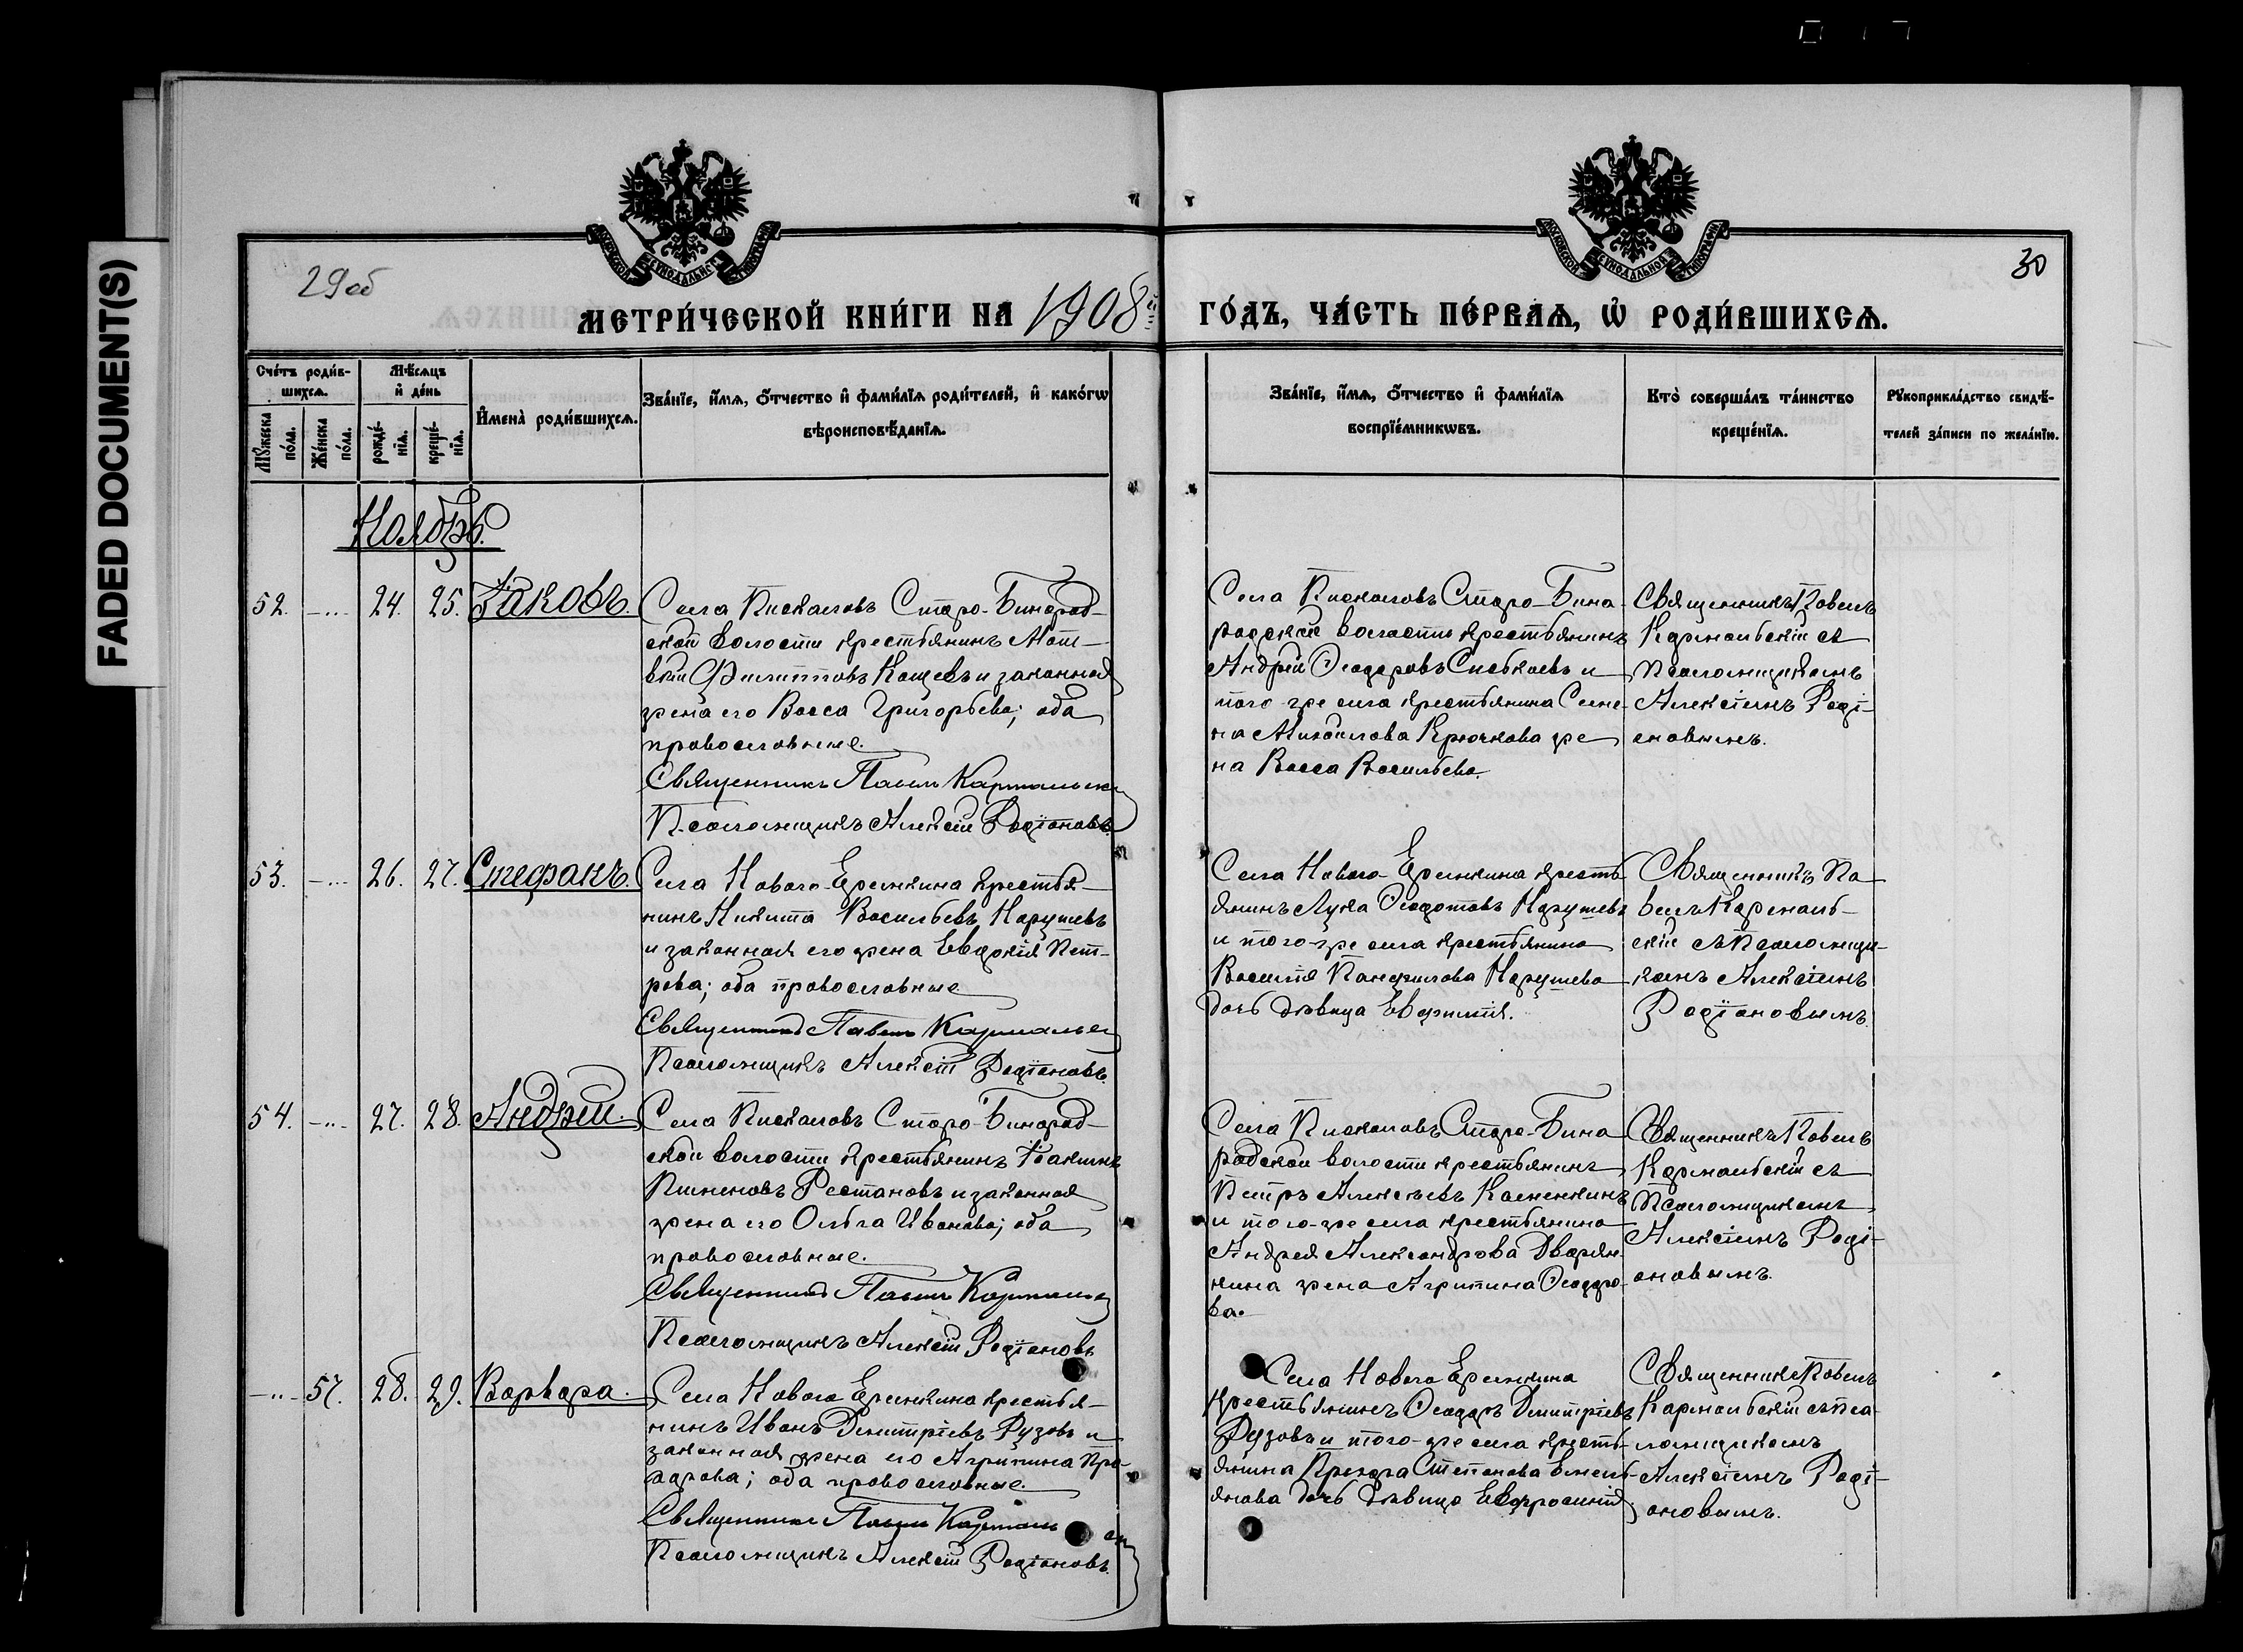 FADED DOCUMENT(S)
29об
30
МЕТРИ́ЧЕСКОЙ КНИ́ГИ НА 1908й
ГО́ДЪ, ЧА́СТЬ ПЕ́РВАѦ, Ѡ҆ РОДИ́ВШИХСѦ.
Сче́тъ роди́в-
шихсѧ.
Мꙋ́жеска
по́ла.
Же́нска
по́ла.
Мѣ́сѧцъ
и҆ де́нь
рожде́-
нїѧ.
креще́-
нїѧ.
И҆мена̀ роди́вшихсѧ.
Зва́нїе, и҆́мѧ, ѻ҆́тчество и҆ фами́лїѧ роди́телей, и҆ како́гѡ
вѣроисповѣ́данїѧ.
Зва́нїе, и҆́мѧ, ѻ҆́тчество и҆ фами́лїѧ
воспрїе́мникѡвъ.
Кто̀ соверша́лъ та́инство
креще́нїѧ.
Рꙋкоприкла́дство свидѣ́-
телей за́писи по жела́нїю.
Ноябрь.
52. -..- 24. 25. Іаковъ.
Села Пискаловъ Старо-Бинарад-
ской волости крестьянинъ Мат-
вѣй Филипповъ Кащевъ и законная
жена его Васса Григорьева; оба
православные.
Священникъ Павелъ Кармальск
Псаломщикъ Алексій Родіоновъ.
Села Пискаловъ Старо-Бина-
радской волости крестьянинъ
Андрей Ѳеодоровъ и
того-же села крестьянина Семе-
на Михайлова Крючкова же
на Васса Васильева.
Священникъ Павелъ
Кармальскій съ
Псаломщикомъ
Алексіемъ Роді-
оновымъ.
53. -..- 26. 27. Стефанъ.
Села Новаго-Еремкина крестья-
нинъ Никита Васильевъ Карушевъ
и законная его жена Евдокія Пет-
рова; оба православные
Священникъ Павелъ Кармальск
Псаломщикъ Алексій Родіоновъ.
Села Новаго-Еремкина кресть-
янинъ Лука Ѳеодотовъ Карушевъ
и того-же села крестьянина
Василія Панфилова Карушева
дочь дѣвица Евфимія.
Священникъ Па-
велъ Кармаль-
скій съ Псаломщи-
комъ Алексіемъ
Родіоновымъ.
54. -..- 27. 28. Андрей.
Села Пискаловъ Старо-Бинарад-
ской волости крестьянинъ Іоакимъ
Пименовъ Рестановъ и законная
жена его Ольга Иванова; оба
православные.
Священникъ Павелъ Кармальск
Псаломщикъ Алексій Родіоновъ
Села Пискаловъ Старо-Бина
радской волости крестьянинъ
Петръ Алексѣевъ Каменкинъ
и того-же села крестьянина
Андрея Александрова Дворян-
кина жена Агрипина Ѳеодоро-
ва.
Священникъ Павелъ
Кармальскій съ
Псаломщикомъ
Алексіемъ Роді-
оновымъ.
-..- 57. 28. 29. Варвара.
Села Новаго Еремкина крестья-
нинъ Иванъ Димитріевъ Рузовъ и
законная жена его Агрипина
оба православные.
Священникъ Павелъ Кармаль
Псаломщикъ Алексій Родіоновъ.
Села Новаго Еремкина
крестьянинъ Ѳеодоръ Димитріевъ
Рузовъ и того-же села кресть-
янина Прохора Степанова Емель-
янова дочь дѣвица Евфросинія
Священникъ Павелъ
Кармальскій съ Пса-
ломщикомъ
Алексіемъ Роді-
оновымъ.